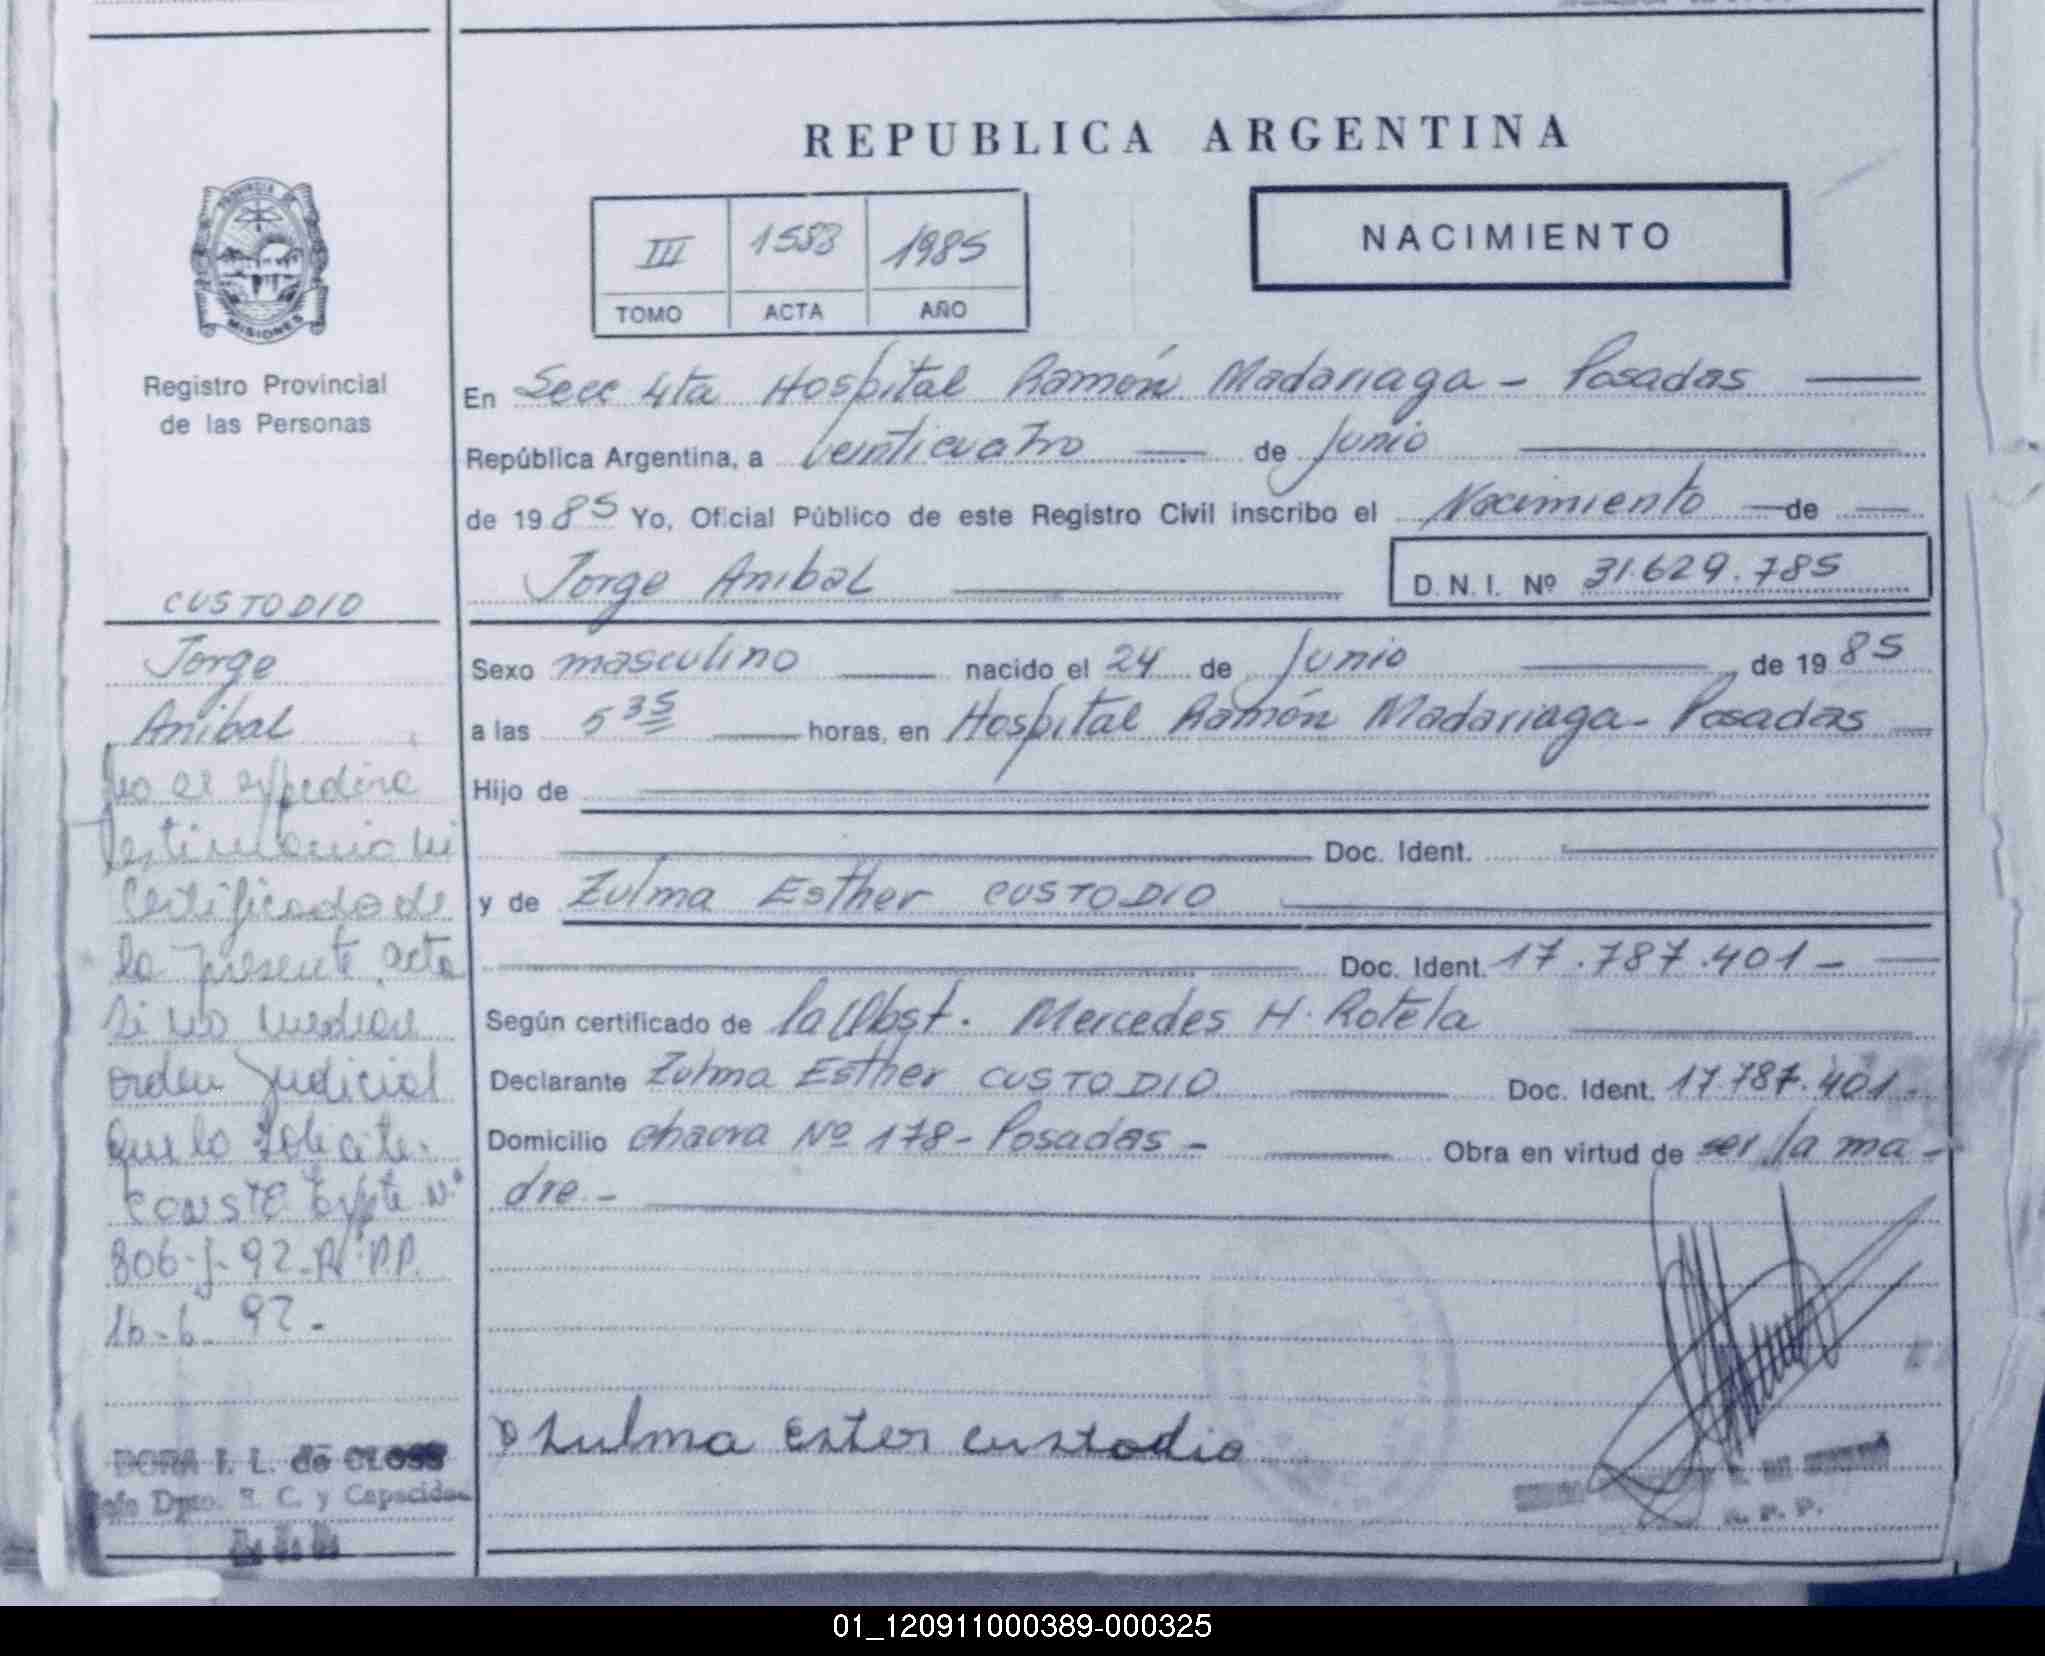 REPUBLICA ARGENTINA
NACIMIENTO
III 1583 1985
TOMO ACTA AÑO
MISIONES
Registro Provincial
de las Personas
En Secc 4ta Hospital Ramón Madariaga - Posadas
República Argentina, a Veinticuatro de Junio
de 1985 Yo, Oficial Público de este Registro Civil inscribo el Nacimiento de
Jorge Anibal D. N. I. Nº 31.629.785
CUSTODIO
Jorge
Anibal
No se expedira
testimonio ni
Certificado de
la presente acta
si no mediare
orden Judicial
que lo solicite.
CONSTE Expte Nº
306-J-92-R.P.P.
16-6-92.-
DORA I. L. de CLOSS
Jefe Dpto. R. C. y Capacidad
Sexo masculino nacido el 24 de Junio de 1985
a las 5 35 horas, en Hospital Ramón Madariaga - Posadas
Hijo de
Doc. Ident.
y de Zulma Esther CUSTODIO
Doc. Ident. 17.787.401 -
Según certificado de la Obst. Mercedes H. Rotela
Declarante Zulma Esther CUSTODIO Doc. Ident. 17.787.401 -
Domicilio chacra Nº 178 - Posadas - Obra en virtud de ser la ma-
dre.-
Zulma Ester custodio
R. P. P.
01_120911000389-000325